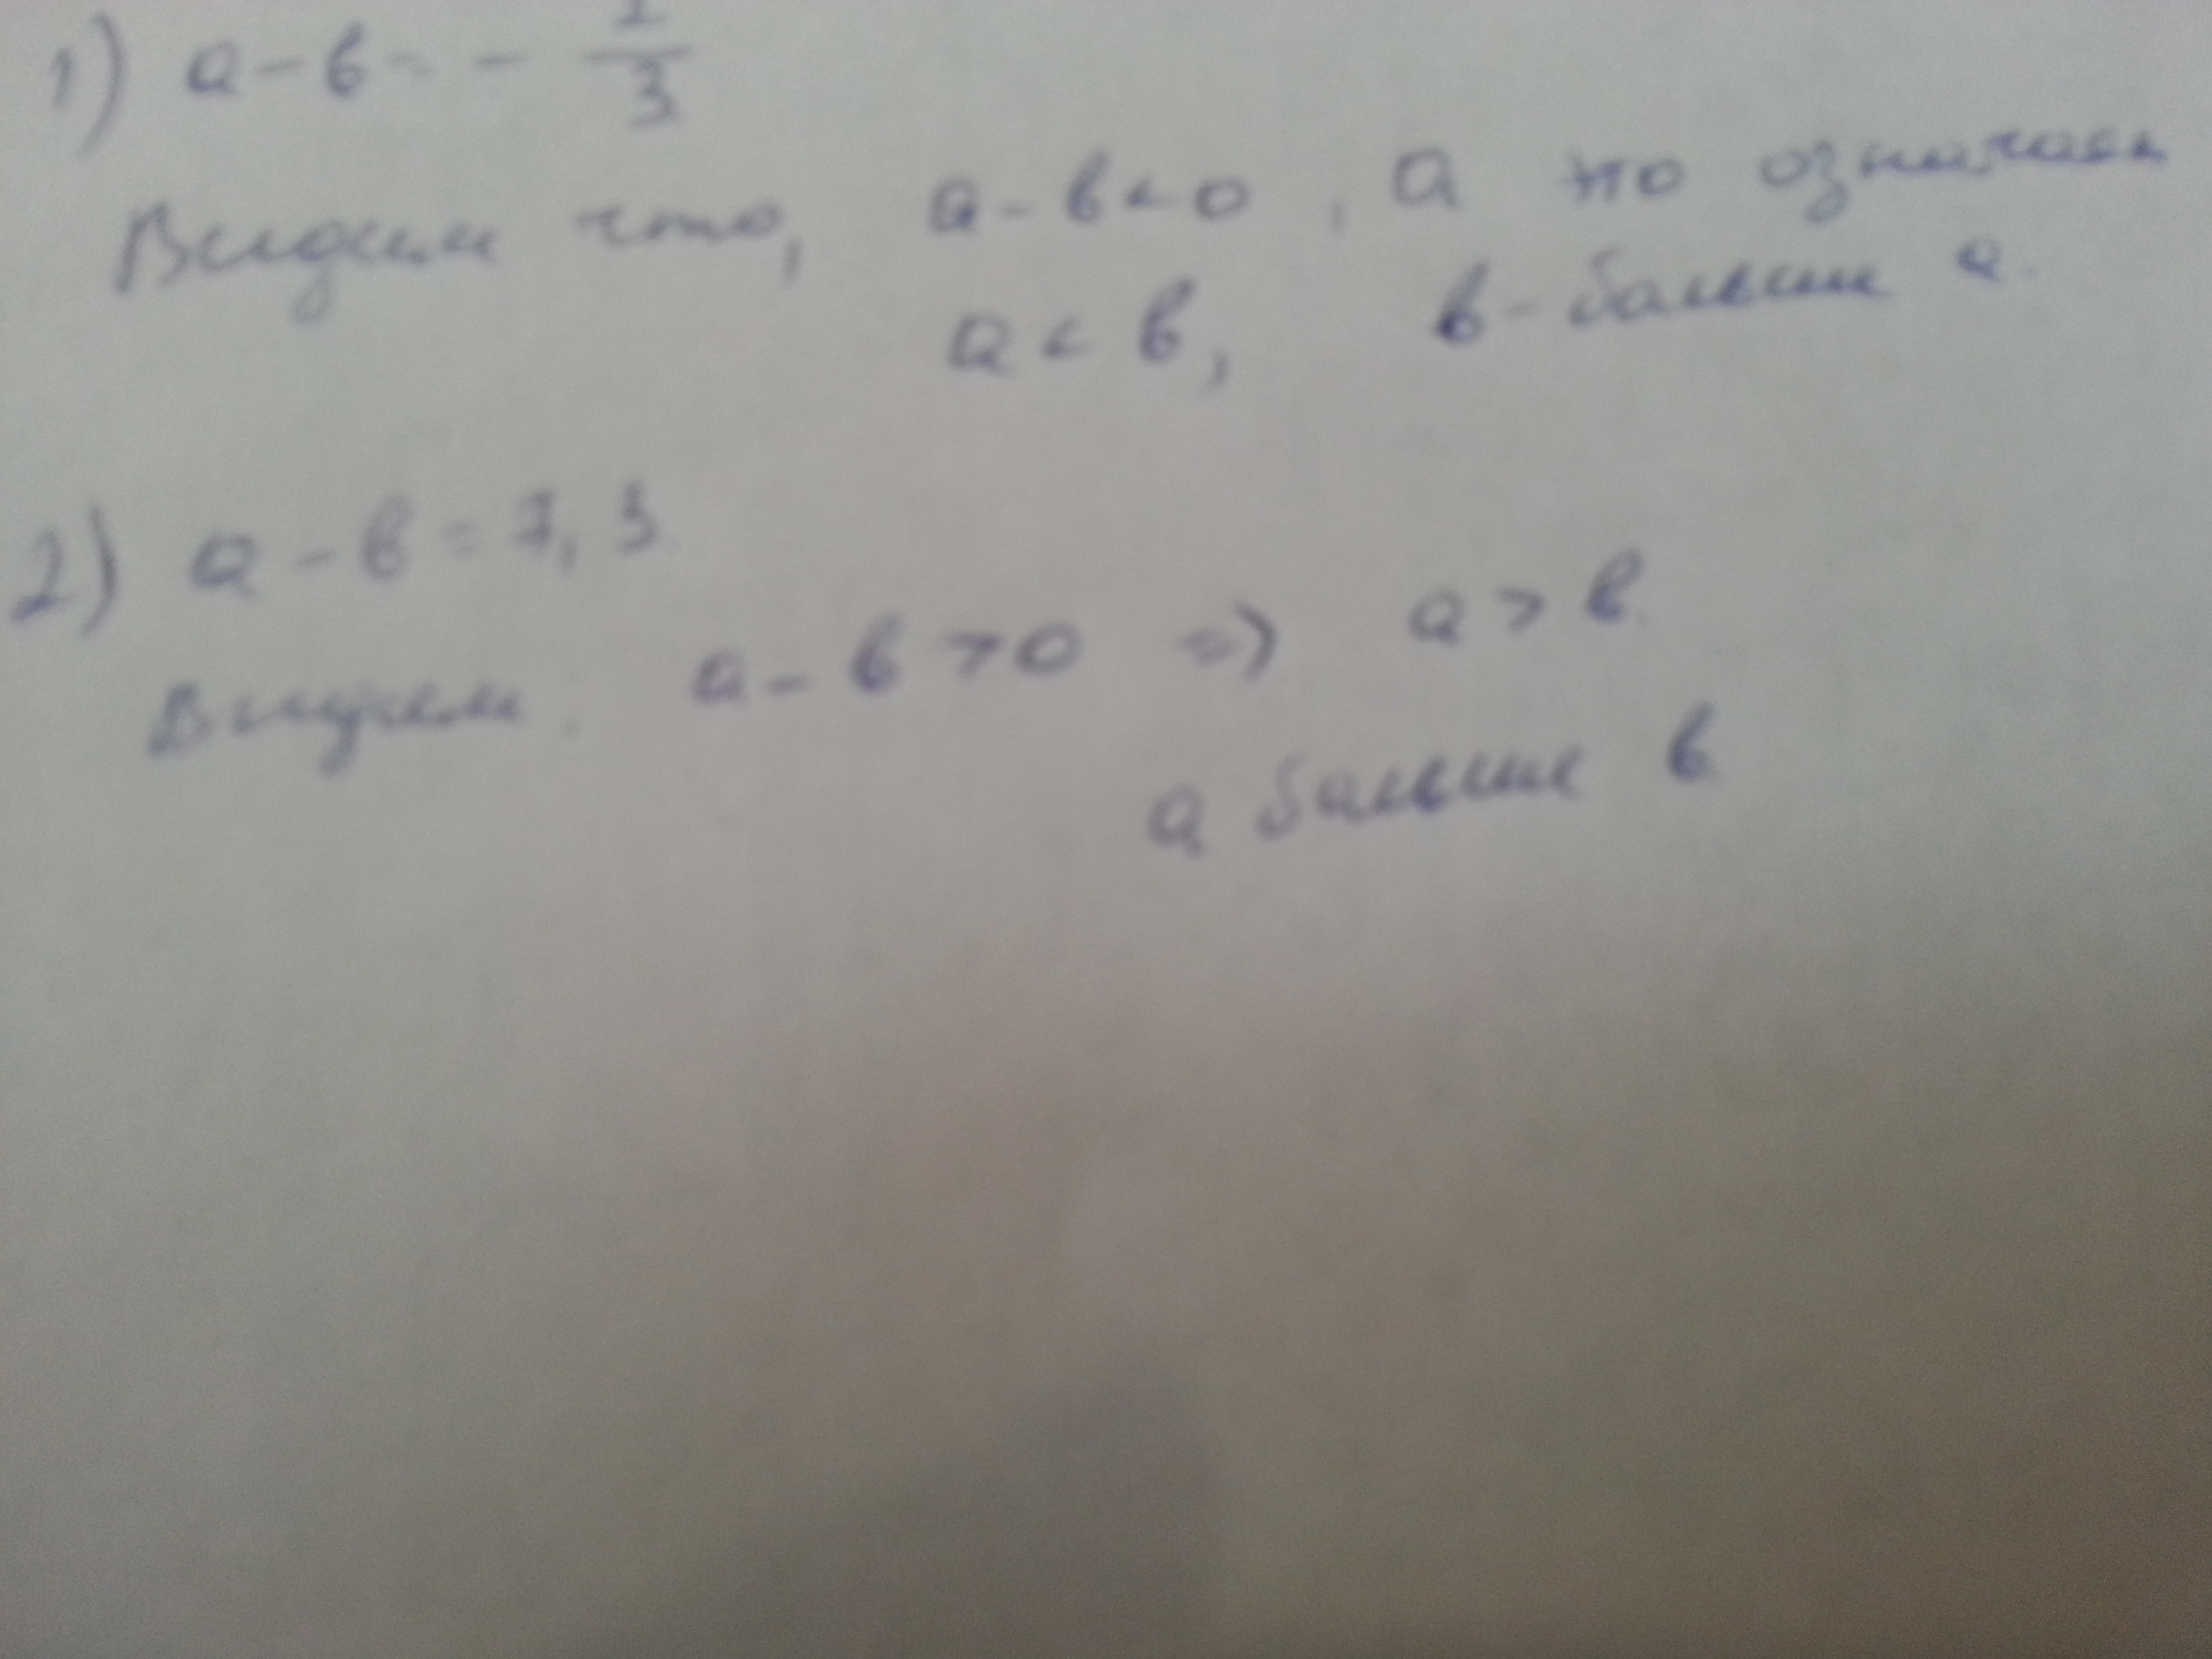 1) а - в = - /3
Видим что, а - в < 0, а это означает
а < в, в - больше а.
2) а - в = 7,3
Видим: а - в > 0 => а > в.
а больше в